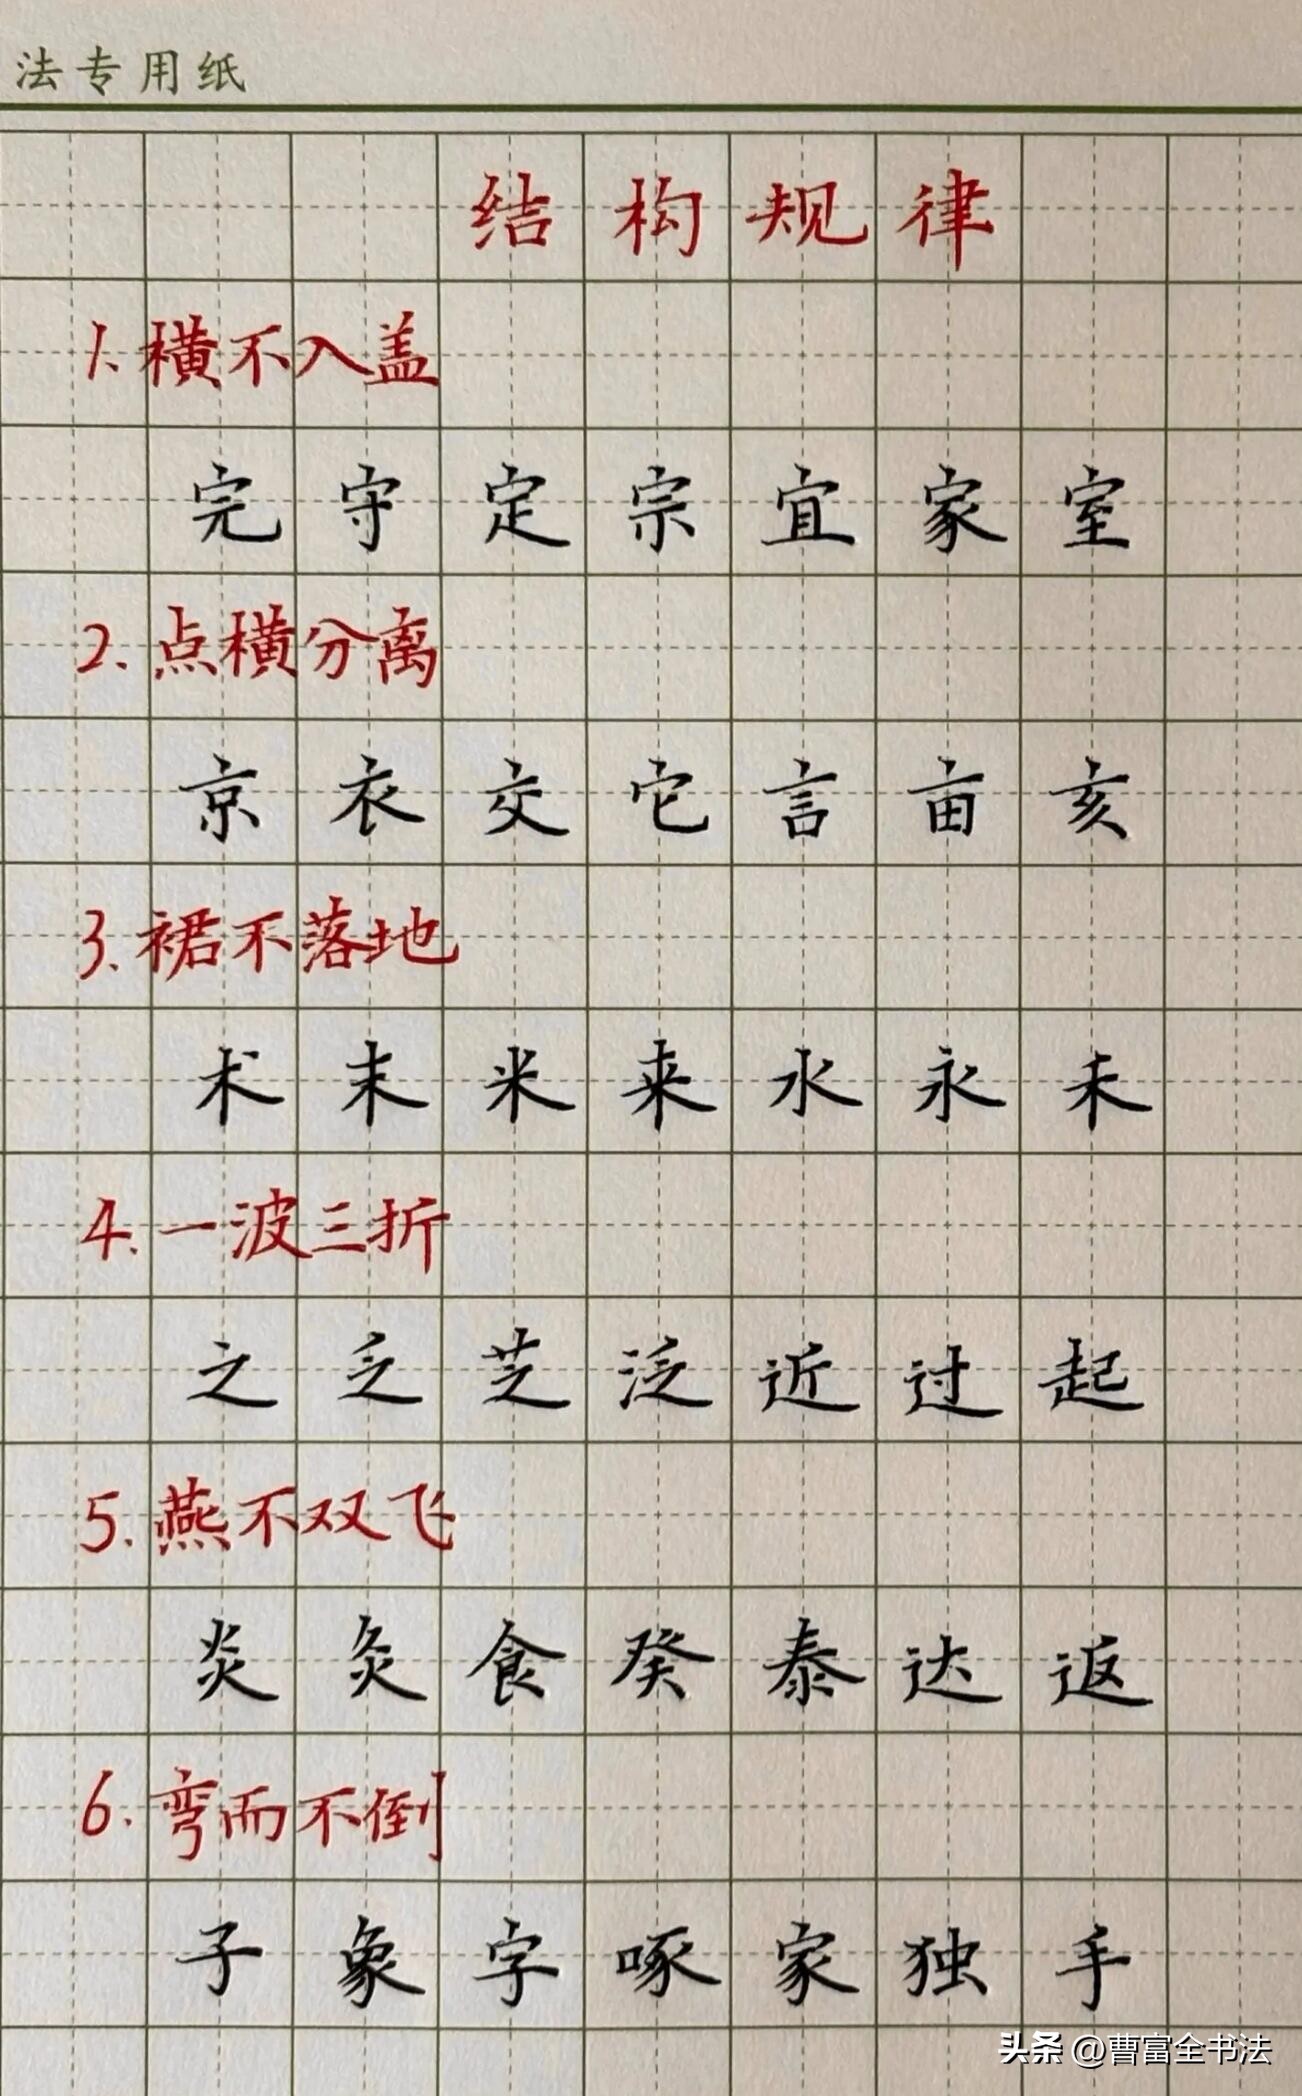 法专用纸
结构规律
1.横不入盖
完守定宗宜家室
2.点横分离
京衣交它言亩亥
3.裙不落地
术末米来水永未
4.一波三折
之乏芝泛近过起
5.燕不双飞
炎灸食癸泰达返
6.弯而不倒
子象字啄家独手
头条@曹富全书法